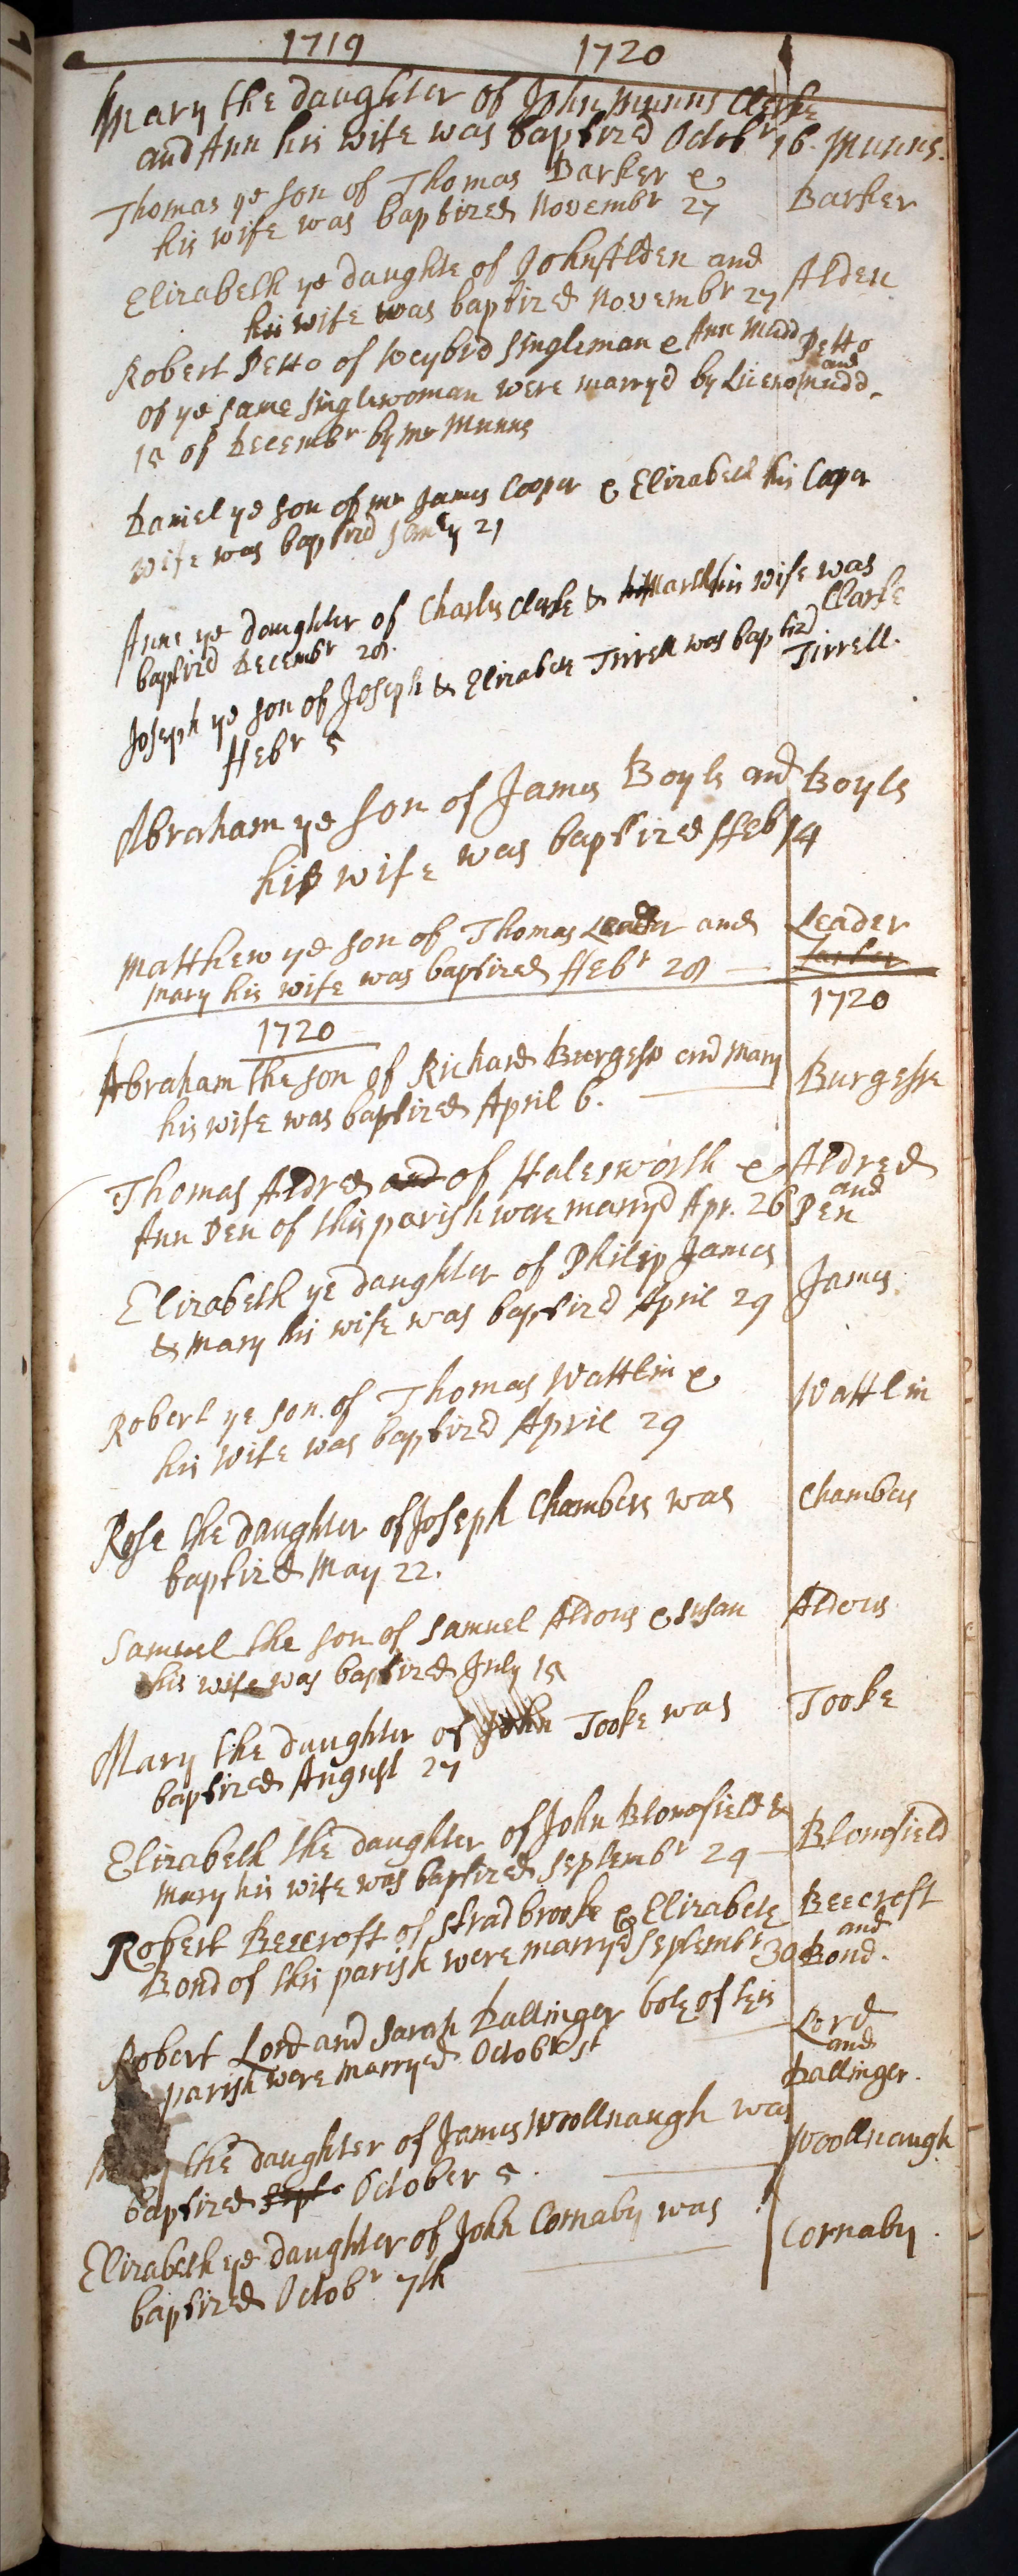 1719 1720
Mary the daughter of John Munns Clerke
and Ann his wife was baptized Octobr 16. Munns.
Thomas ye son of Thomas Barker &
his wife was baptized Novembr 27 Barker
Elizabeth ye daughte of John Alden and
his wife was baptized Novembr 27 Alden
Robert Petto of Weybrd Singleman & Ann Mudd Petto
of ye same singlewoman were marryd by and Mudd
15 of Decembr by Mr Munns
Daniel ye son of mr James Cooper & Elizabeth his Cooper
wife was baptizd 21
Anne ye daughter of Charles Clerke & his wife was
baptizd Decembr 28. Clarke
Joseph ye son of Joseph & Elizabeth Tirrell was baptizd Tirrell.
ffebr 5
Abraham ye son of James Boyls and Boyls
his wife was baptized ffeb 14
Matthew ye son of Thomas Leader and Leader
Mary his wife was baptized ffebr 28
1720 1720
Abraham the son of Richard Burgess and Mary Burgesse
his wife was baptized April 6.
Thomas Aldred and of Halesworth & Aldred
and
Ann Pen of this parish were marryd Apr. 26 Pen
Elizabeth ye daughter of Philip James James
& Mary his wife was baptizd April 29
Robert ye son of Thomas Wattlin & Wattlin
his wife was baptizd April 29
Rose the daughter of Joseph Chambers was Chambers
baptized May 22.
Samuel the son of Samuel Aldous & Susan Aldous
his wife was baptized July 15
Mary the daughter of John Tooke was Tooke
baptized August 27
Elizabeth the daughter of John Blomfield &
Mary his wife was baptized Septembr 29 Blomfield
Robert Beecroft of Stradbrooke & Elizabeth Beecroft
and
Bond of this parish were marryd Septembr 30 Bond.
Robert Lord and Sarah Dallinger both of this Lord
and
parish were marryed Octobr 1st Dallinger.
the daughter of James Woollnaugh was Woollnaugh
baptized Sept. October 5.
Elizabeth ye daughter of John Cornaby was Cornaby.
baptized Octobr 7th